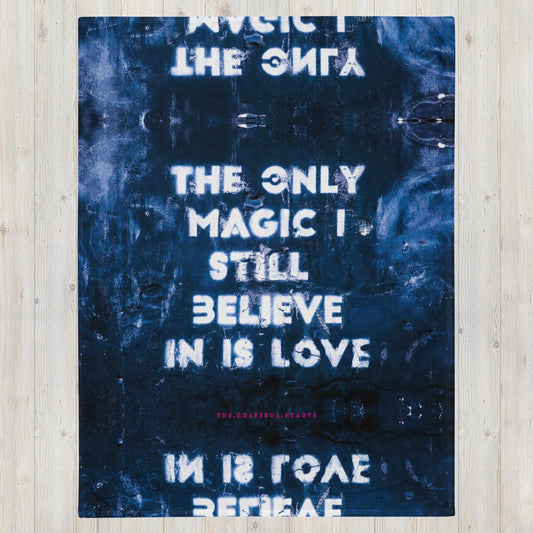 MAGIC I
THE ONLY
THE ONLY
MAGIC I
STILL
BELIEVE
IN IS LOVE
THE.GRATEFUL.HEARTS
IN IS LOVE
BELIEVE